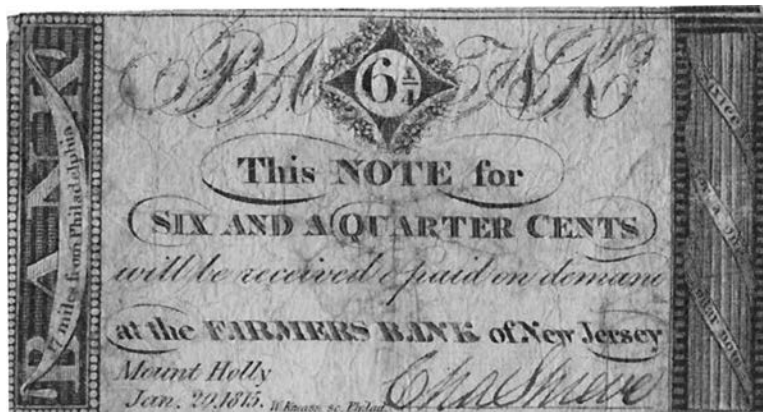 BANK
17 miles from Philadelphia
BANK
6 1/4
This NOTE for
SIX AND A QUARTER CENTS
will be received & paid on demand
at the FARMERS BANK of New Jersey
Mount Holly
Jan. 29, 1815.
W Kneass sc. Philad.
Chas Shreve
for a one
dollar note